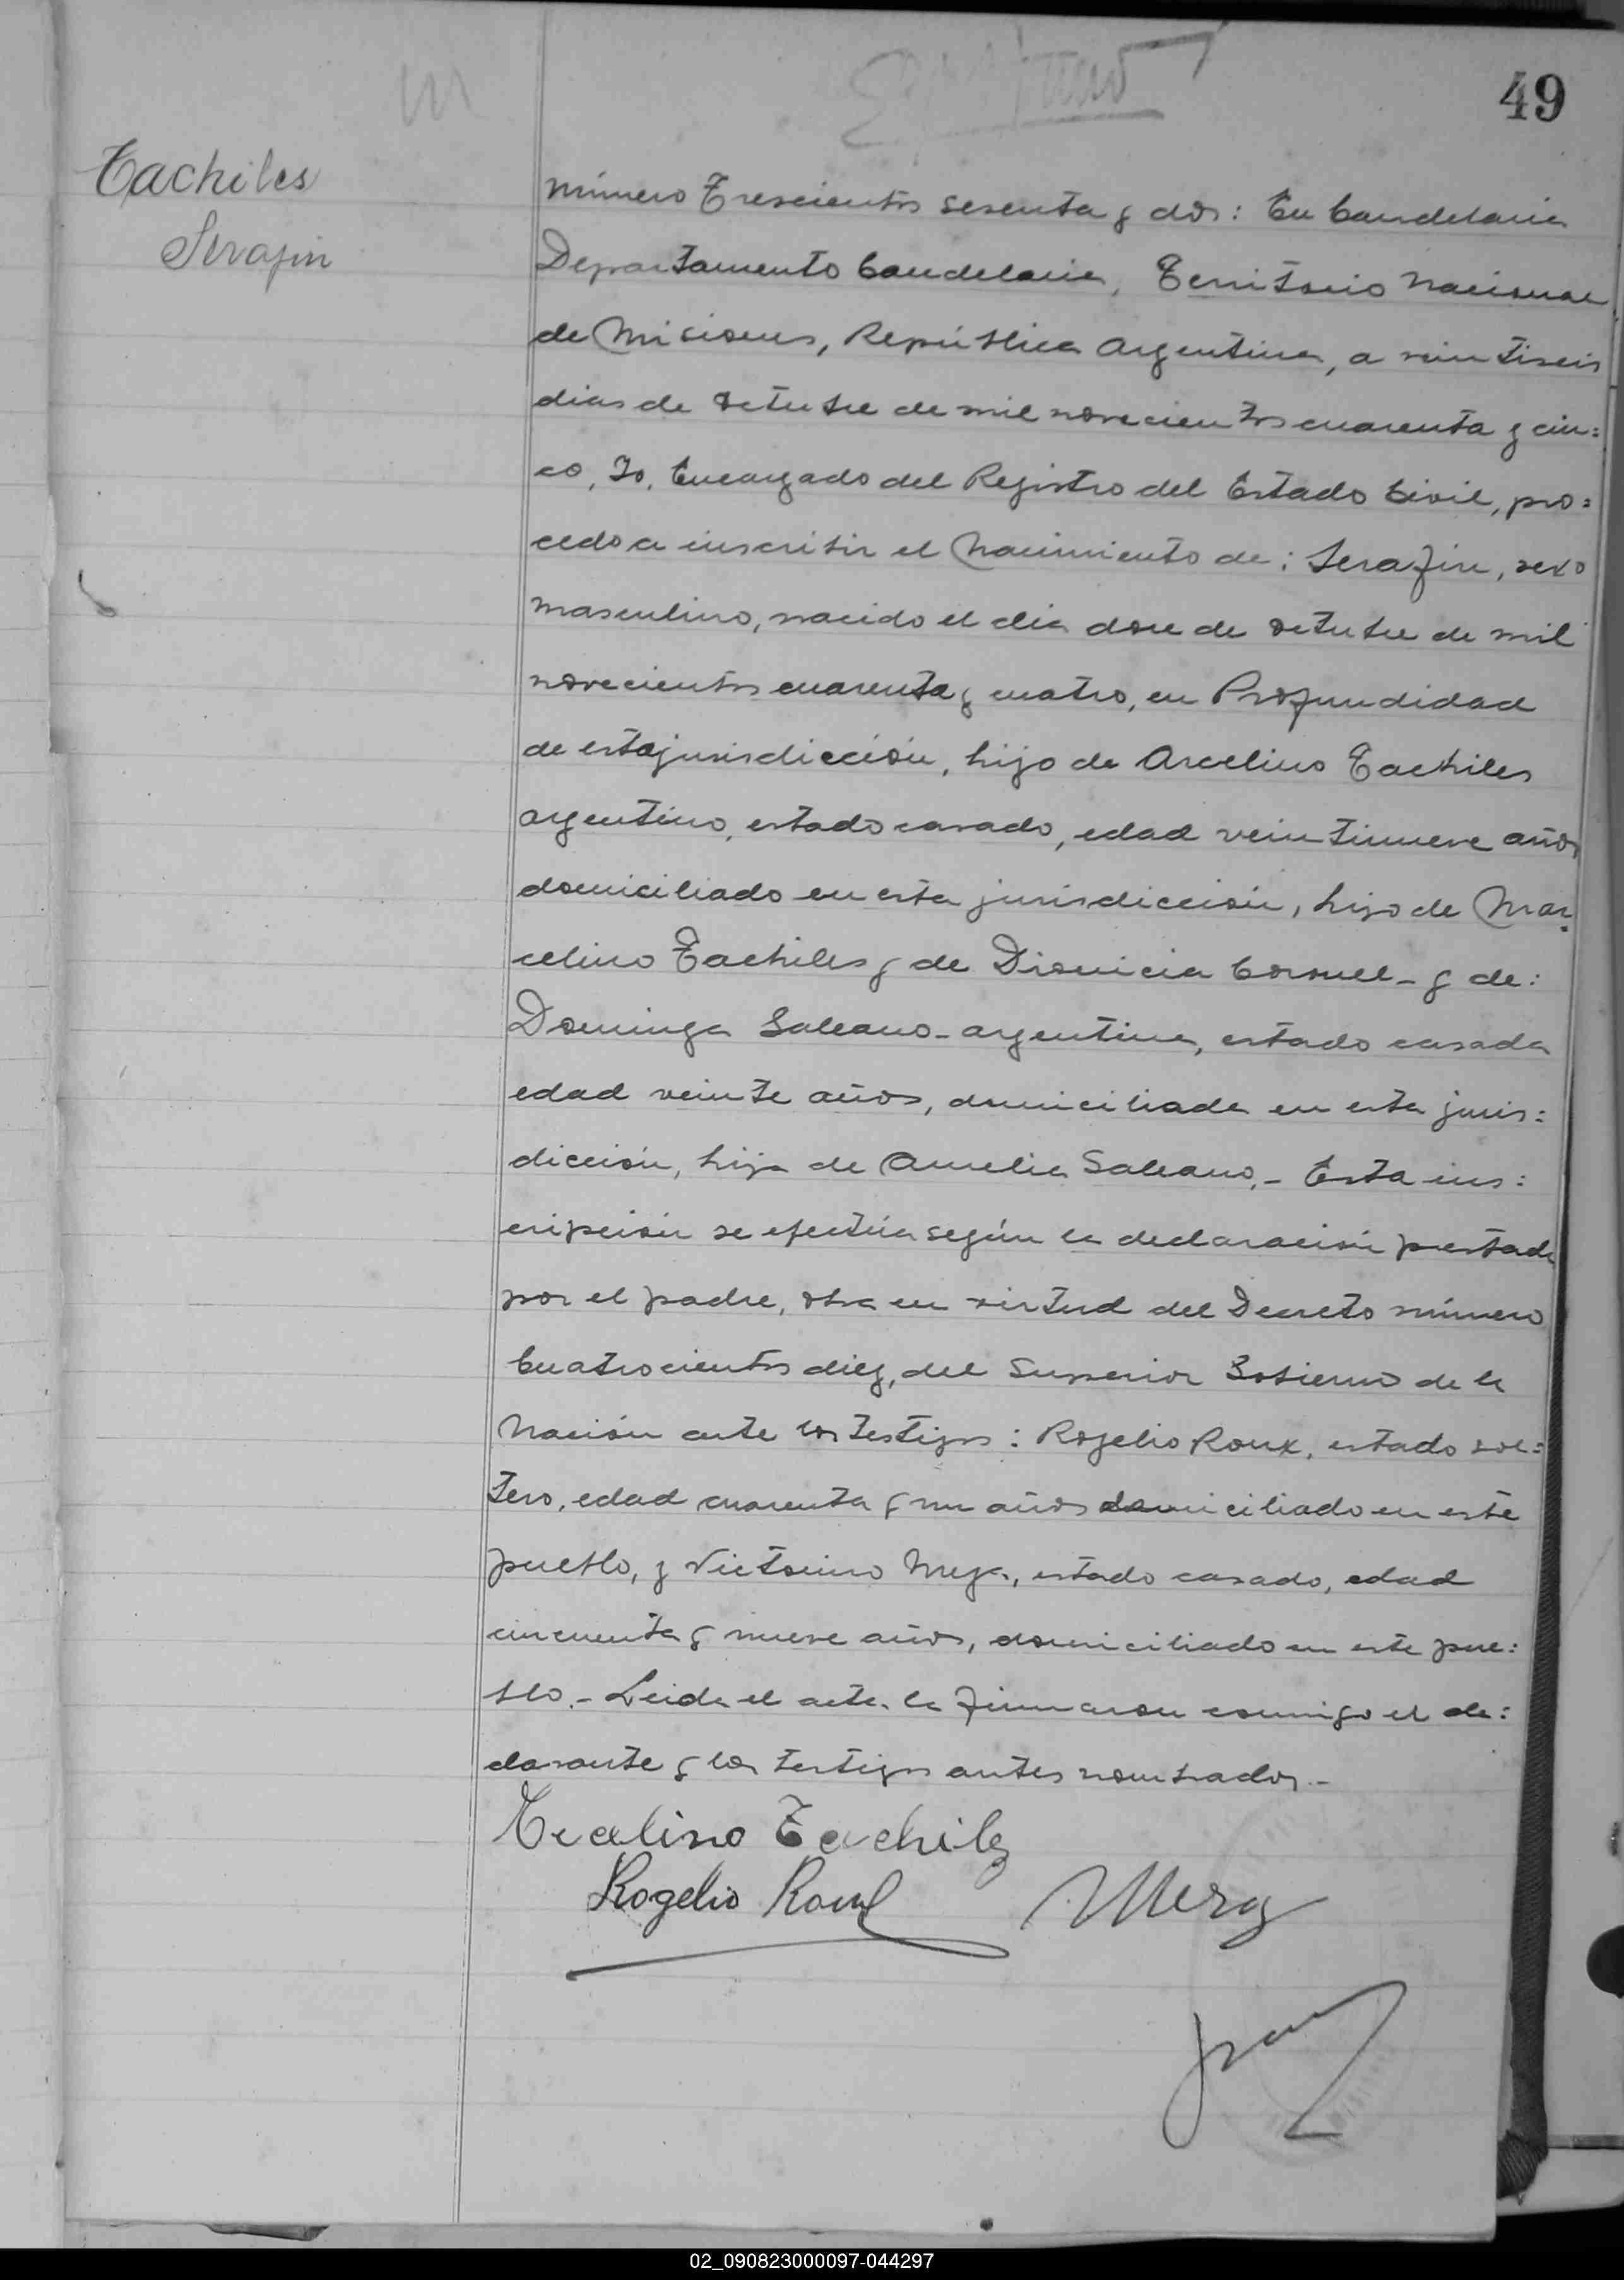 49
Tachiles
Serafin
Número Trescientos sesenta y dos: En Candelaria
Departamento Candelaria, Territorio Nacional
de Misiones, República Argentina, a veintiseis
dias de Octubre de mil novecientos cuarenta y cin=
co, Yo, Encargado del Registro del Estado Civil, pro=
cedo a inscribir el Nacimiento de: Serafin, sexo
masculino, nacido el dia doce de Octubre de mil
novecientos cuarenta y cuatro, en Profundidad
de esta jurisdicción, hijo de Arcelino Tachiles
argentino, estado casado, edad veintinueve años
domiciliado en esta jurisdicción, hijo de Mar=
celino Tachiles y de Dionicia Coronel_ y de:
Dominga Galeano_ argentina, estado casada
edad veinte años, domiciliada en esta juris=
dicción, hija de Aurelia Galeano._ Esta ins=
cripción se efectúa según la declaración prestada
por el padre, obra en virtud del Decreto número
Cuatrocientos diez, del Superior Gobierno de la
Nación ante los testigos: Rogelio Roux, estado sol=
tero, edad cuarenta y un años domiciliado en este
pueblo, y Victorino Meza, estado casado, edad
cincuenta y nueve años, domiciliado en este pue=
blo._ Leida el acta la firmaron conmigo el de=
clarante y los testigos antes nombrados._
Tachiles
Rogelio Roux
Meza
02_090823000097-044297